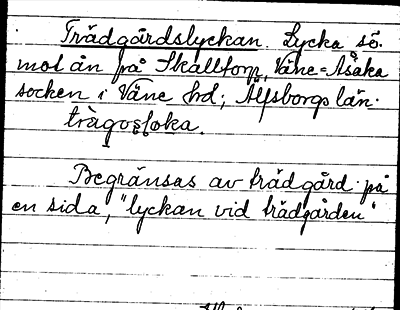 Trädgårdslyckan. Lycka sö.
mot ån på Skalltorp, Väne-Åsaka
socken i Väne hrd; Älfsborgs län.
trägosloka.
Begränsas av trädgård på
en sida, "lyckan vid trädgården"